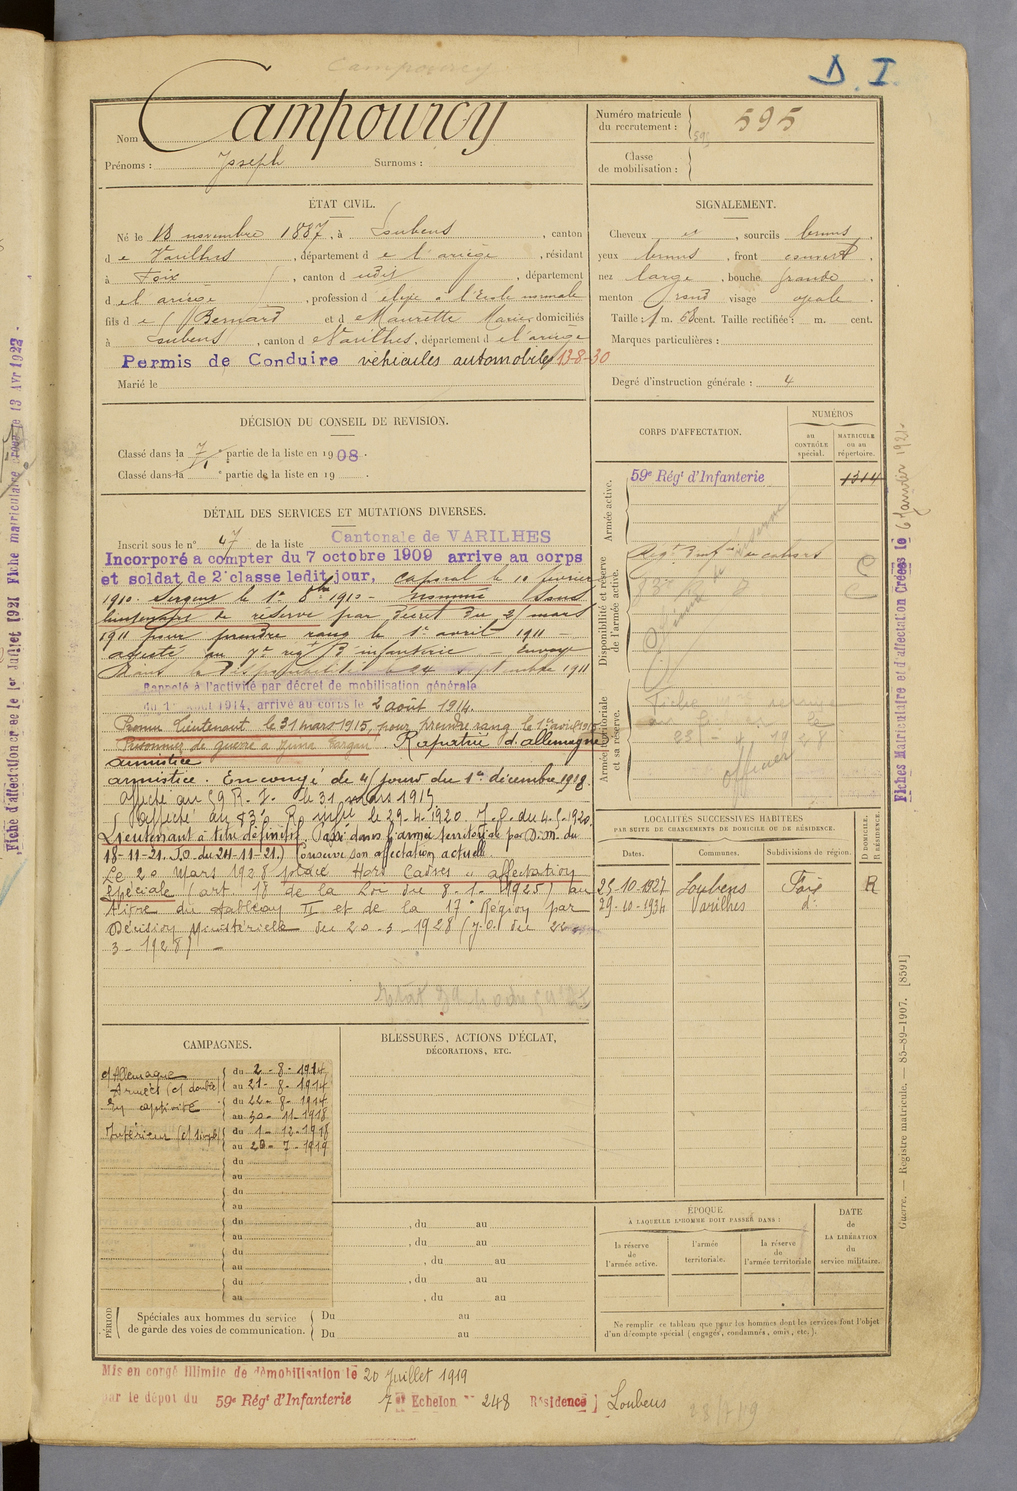 D. I.
Campourcy
Nom : Campourcy
Prénoms : Joseph Surnoms :
Numéro matricule du recrutement : 595
Classe de mobilisation :
ÉTAT CIVIL.
Né le 13 novembre 1887, à Loubens, canton
de Varilhes, département de l'ariège, résidant
à Foix, canton d udit, département
d el ariège, profession d élève à l'Ecole normale
fils de Bernard et de Maurette Marie domiciliés
à Loubens, canton de Varilhes, département d el'ariège
Permis de Conduire véhicules automobiles 13-8-30
Marié le
SIGNALEMENT.
Cheveux et, sourcils bruns,
yeux bruns, front couvert,
nez large, bouche grande,
menton rond visage ovale.
Taille : 1 m. 68 cent. Taille rectifiée : m. cent.
Marques particulières :
Degré d'instruction générale : 4
DÉCISION DU CONSEIL DE REVISION.
Classé dans la partie de la liste en 1908.
Classé dans la partie de la liste en 19
CORPS D'AFFECTATION.
NUMÉROS
au CONTRÔLE spécial.
MATRICULE ou au répertoire.
Armée active.
59e Régt d'Infanterie 1314
Disponibilité et réserve de l'armée active.
Armée territoriale et sa réserve.
officier
DÉTAIL DES SERVICES ET MUTATIONS DIVERSES.
Inscrit sous le n° 47 de la liste Cantonale de VARILHES
Incorporé a compter du 7 octobre 1909 arrive au corps
et soldat de 2e classe ledit jour, caporal le 10 fevrier
1910. Sergent le 1er 8bre 1910 - Nommé Sous
lieutenant de reserve par décret du 21 mars
1911 pour prendre rang le 1er avril 1911 -
affecté au 7e regt d'infanterie - Envoyé
dans la disponibilité le 24 septembre 1911
Rappelé à l'activité par décret de mobilisation générale
du 1er août 1914, arrivé au corps le 2 août 1914.
Promu lieutenant le 31 mars 1915, pour prendre rang le 1er avril 1915.
Prisonnier de guerre à Rapatrié d'allemagne
armistice
armistice. En congé de 45 jours du 1er décembre 1918.
Affecté au 59 R.I. le 31 mars 1915
Affecté au 83e R. Infie le 29.4.1920. J.O. du 4.5.1920
Lieutenant à titre définitif. Passé dans l'armée territoriale par D.M. du
18-11-21. J.O. du 24-11-21.) Conserve son affectation actuelle.
Le 20 mars 1928 placé Hors Cadres "affectation
spéciale (art. 18 de la Loi du 8-1-1925) au
titre du tableau II et de la 17e Région par
Décision Ministérielle du 20-3-1928 (J.O. du 22
3-1928) -
LOCALITÉS SUCCESSIVES HABITÉES
PAR SUITE DE CHANGEMENTS DE DOMICILE OU DE RÉSIDENCE.
Dates. Communes. Subdivisions de région. D DOMICILE. R RÉSIDENCE.
25-10-1927 Loubens Foix R
29-10-1934 Varilhes d°
CAMPAGNES.
c/Allemagne
Armées (c/ double) du 2-8-1914 au 21-8-1914
En captivité du 22-8-1914 au 30-11-1918
Intérieur (c/ simple) du 1-12-1918 au 20-7-1919
du
au
du
au
du
au
du
au
du
au
BLESSURES, ACTIONS D'ÉCLAT,
DÉCORATIONS, ETC.
, du au
, du au
, du au
, du au
, du au
PÉRIOD
Spéciales aux hommes du service de garde des voies de communication.
Du au
Du au
ÉPOQUE
À LAQUELLE L'HOMME DOIT PASSER DANS :
la réserve de l'armée active.
l'armée territoriale.
la réserve de l'armée territoriale
DATE de LA LIBÉRATION du service militaire.
Ne remplir ce tableau que pour les hommes dont les services font l'objet
d'un décompte spécial (engagés, condamnés, omis, etc.).
Mis en congé illimité de démobilisation le 20 Juillet 1919
par le dépot du 59e Régt d'Infanterie 7e Echelon N° 248 Résidence ] Loubens
28/7/19
Fiche d'affectation créée le 1er Juillet 1921 Fiche matriculaire 13 Avr 1922
Fiches Matriculaire et d'affectation Créées le 6 Janvier 1921.
Guerre. — Registre matricule. — 85-89-1907. [8591]